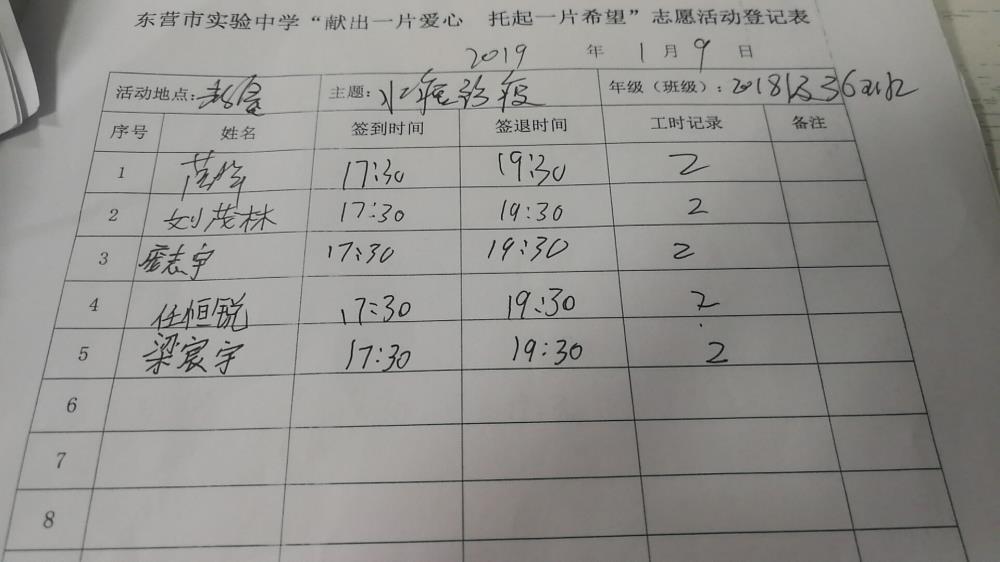 东营市实验中学“献出一片爱心 托起一片希望”志愿活动登记表
2019 年 1 月 9 日
活动地点: 主题: 年级（班级）: 2018级36班
序号 姓名 签到时间 签退时间 工时记录 备注
1 17:30 19:30 2
2 刘茂林 17:30 19:30 2
3 志宇 17:30 19:30 2
4 任恒锐 17:30 19:30 2
5 梁宸宇 17:30 19:30 2
6
7
8